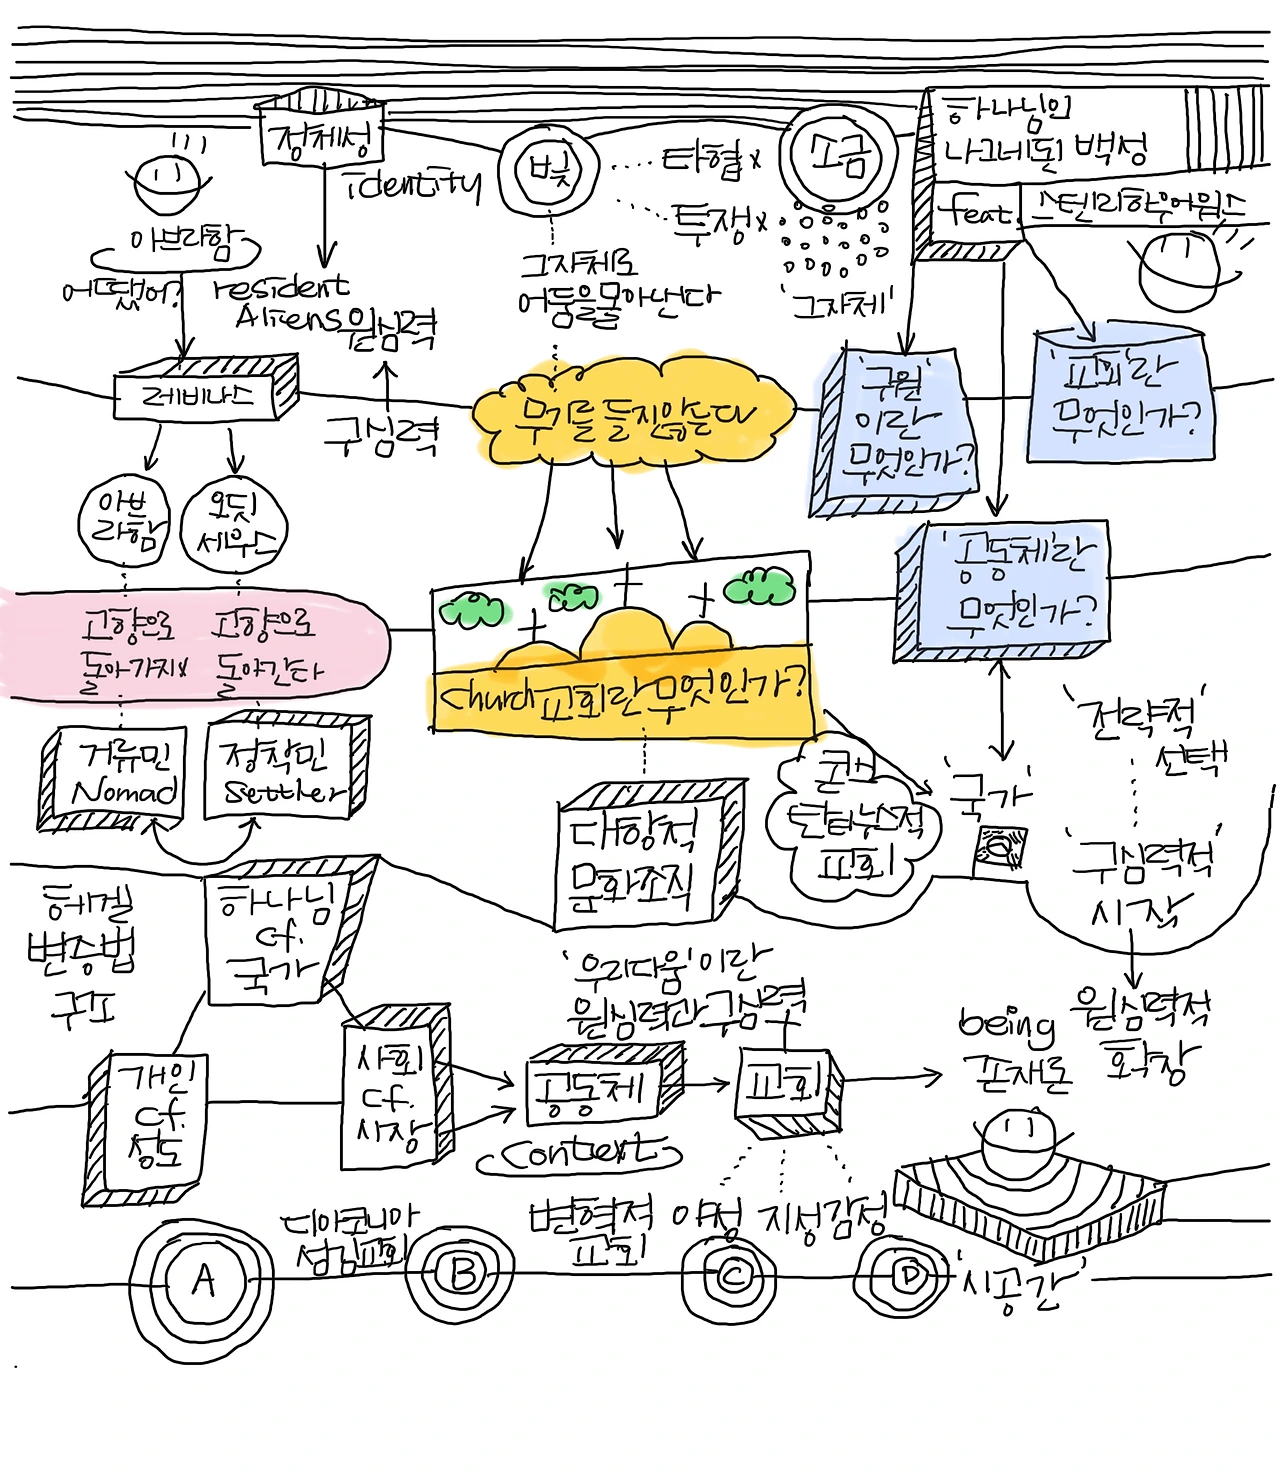 정체성
identity
resident
Aliens
원심력
구심력
아브라함
어땠어?
레비나스
아브
라함
오딧
세우스
고향으로
돌아가지x
고향으로
돌아간다
거류민
Nomad
정착민
settler
빛
타협x
투쟁x
그자체로
어둠을몰아낸다
소금
'그자체'
하나님의
나그네된 백성
feat.
스텐리하우어워스
무기를 들지않는다
'구원'
이란
무엇인가?
'교회'란
무엇인가?
'공동체'란
무엇인가?
church 교회란 무엇인가?
대항적
문화조직
콘스
탄티누스적
교회
'국가'
'전략적'
선택
'구심력적'
시장
원심력적
확장
헤겔
변증법
구조
하나님
cf.
국가
개인
cf.
성도
사회
cf.
시장
'우리다움'이란
원심력과구심력
공동체
context
교회
being
존재론
디아코니아
섬김교회
변혁적
교회
야성
지성감성
A
B
C
D
'시공간'